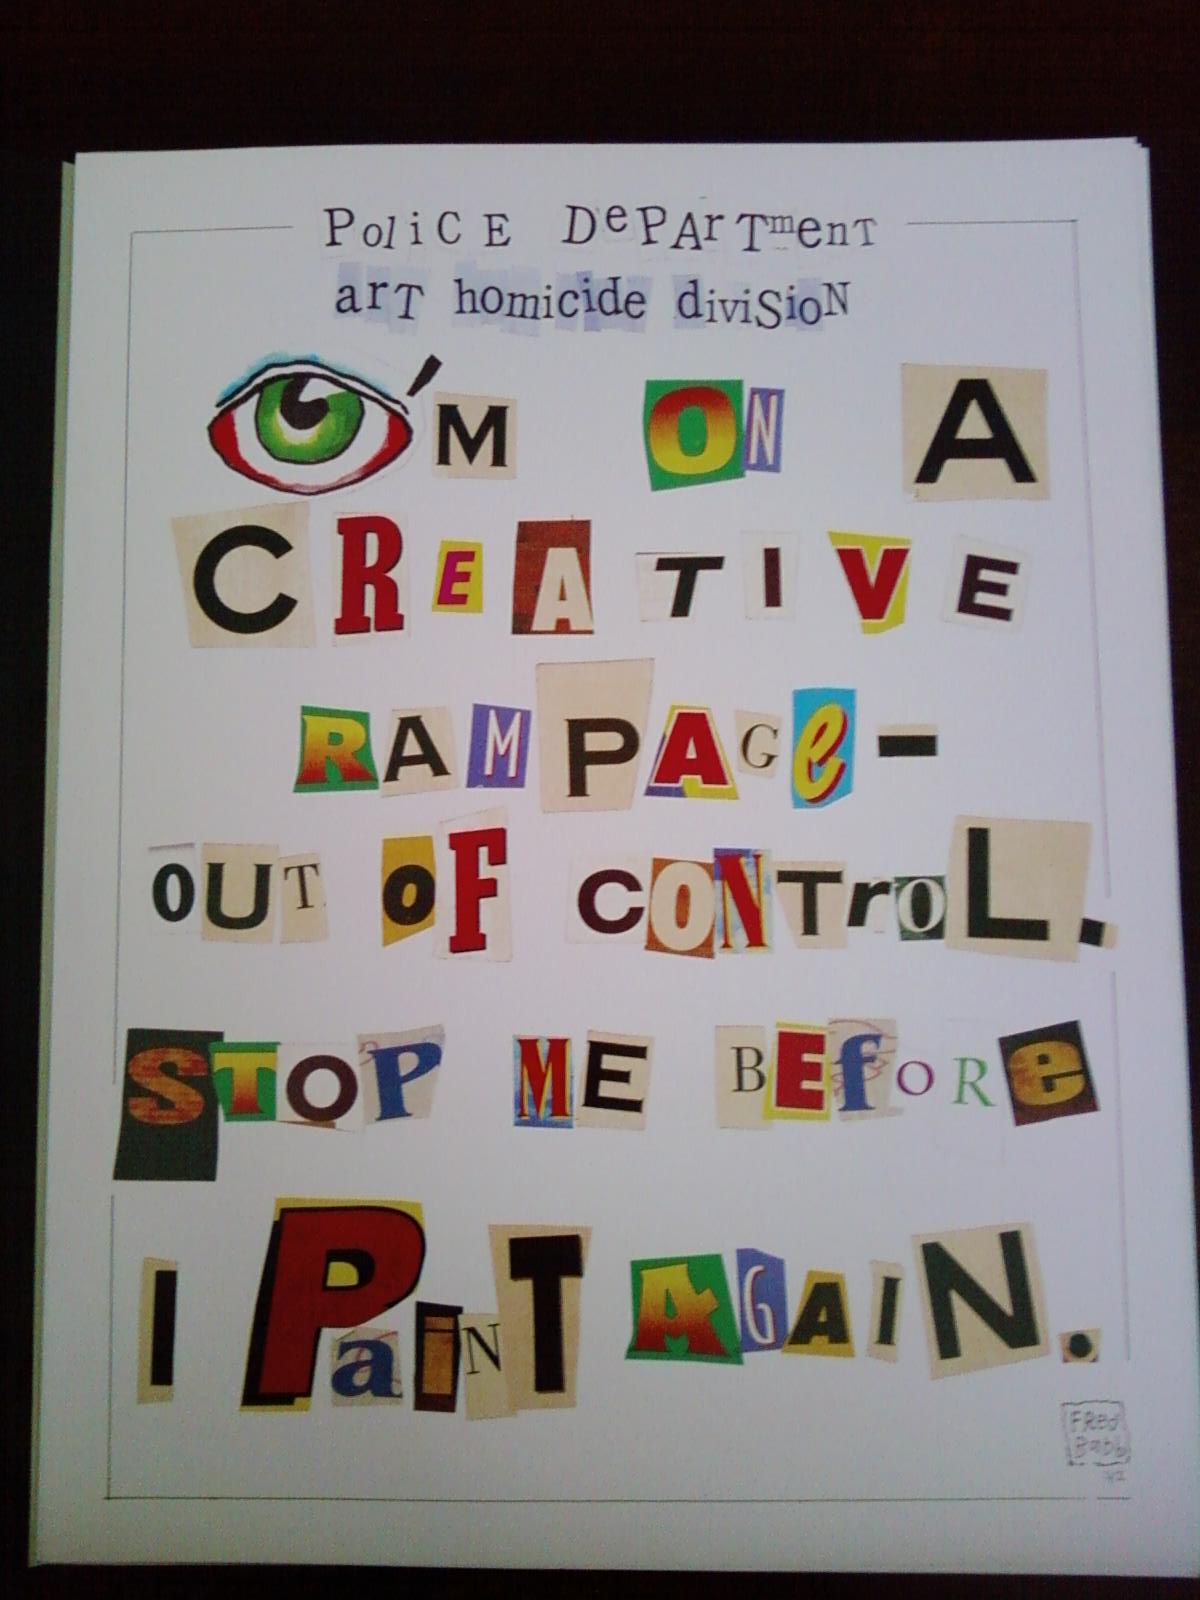 PoliCE DePArTmenT
arT homicide diviSioN
'M ON A
CREATIVE
RAMPAGe-
OUT OF CONTroL.
STOP ME BEfoRe
I PaiNT AGAIN.
FReD
Babb